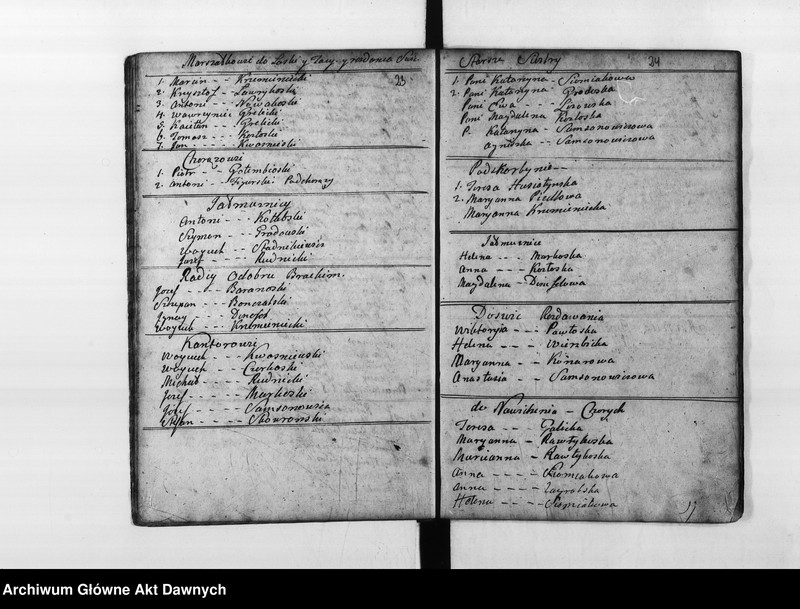 Marszałkowie do Laski y Tacy y rozdania
23
1. Marcin - - Krzemieniecki
2. Krysztof - Lawrykoski
3. Antoni - - Nowakoski
4. Wawrzyniec Grelicki
5. Kaietan - - Grelicki
6. Tomasz - - Kozłoski
7. Jan - - - Kwasniecki
Chorązowie
1. Piotr - - Gołembioski
2. Antoni - - Figurski Podchorązy
Jałmuznicy
Antoni - - - Kołabski
Szymon - - - Grodowski
Woyciech - -
Jozef - - - Rudnicki
Radcy Odobru Brackim.
Jozef - - - - Baranoski
Szczepan - - - Bonczalski
Jgnacy - - -
Woyciech - - - Krzemieniecki
Kantorowie
Woyciech - - - - Kwasniewski
Woyciech - - - - Czerkoski
Michał - - - - Rudnicki
Jozef - - - - - Markoski
Jozef - - - - - Samsonowicz
Stefan - - - - Skowronski
Starsze Siostry
24
1. Pani Katarzyna - Siemiakowa
2. Pani Katarzyna - Brodecka
Pani Ewa - - - Lisowska
Pani Magdalena Kozłoska
P. Katarzyna - Samsonowiczowa
Agniszka - - Samsonowiczowa
Podskarbynie - -
1. Teresa Husiatynska
2. Maryanna Piedłowa
Maryanna Krzemieniecka
Jałmuznice
Helena - - - Markoska
Anna - - - Kozłoska
Magdalena -
Doswic Rozdawania
Wiktoryja - - - Pawłoska
Helena - - - Wierzbicka
Maryanna - - Konarowa
Anastazia - - Samsonowiczowa
do Nawidzenia - Chorych
Teresa - - - Galicka
Maryanna - Rawłykoska
Maricianna - Rawłykoska
Anna - - - - Siemiakowa
Anna - - - - Zagrobska
Helena - - - - Siemiakowa
Archiwum Główne Akt Dawnych